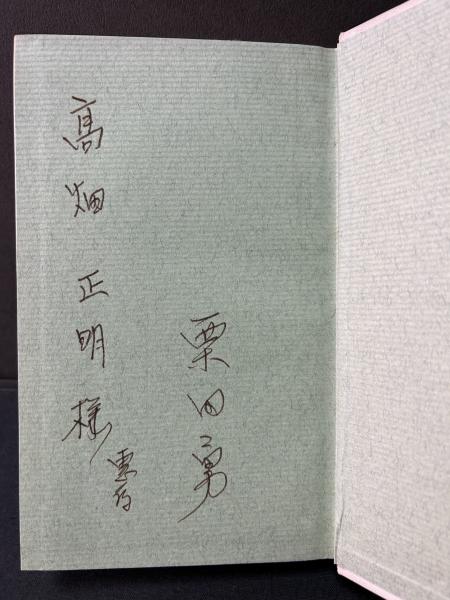 栗田勇
髙畑正明様
惠存